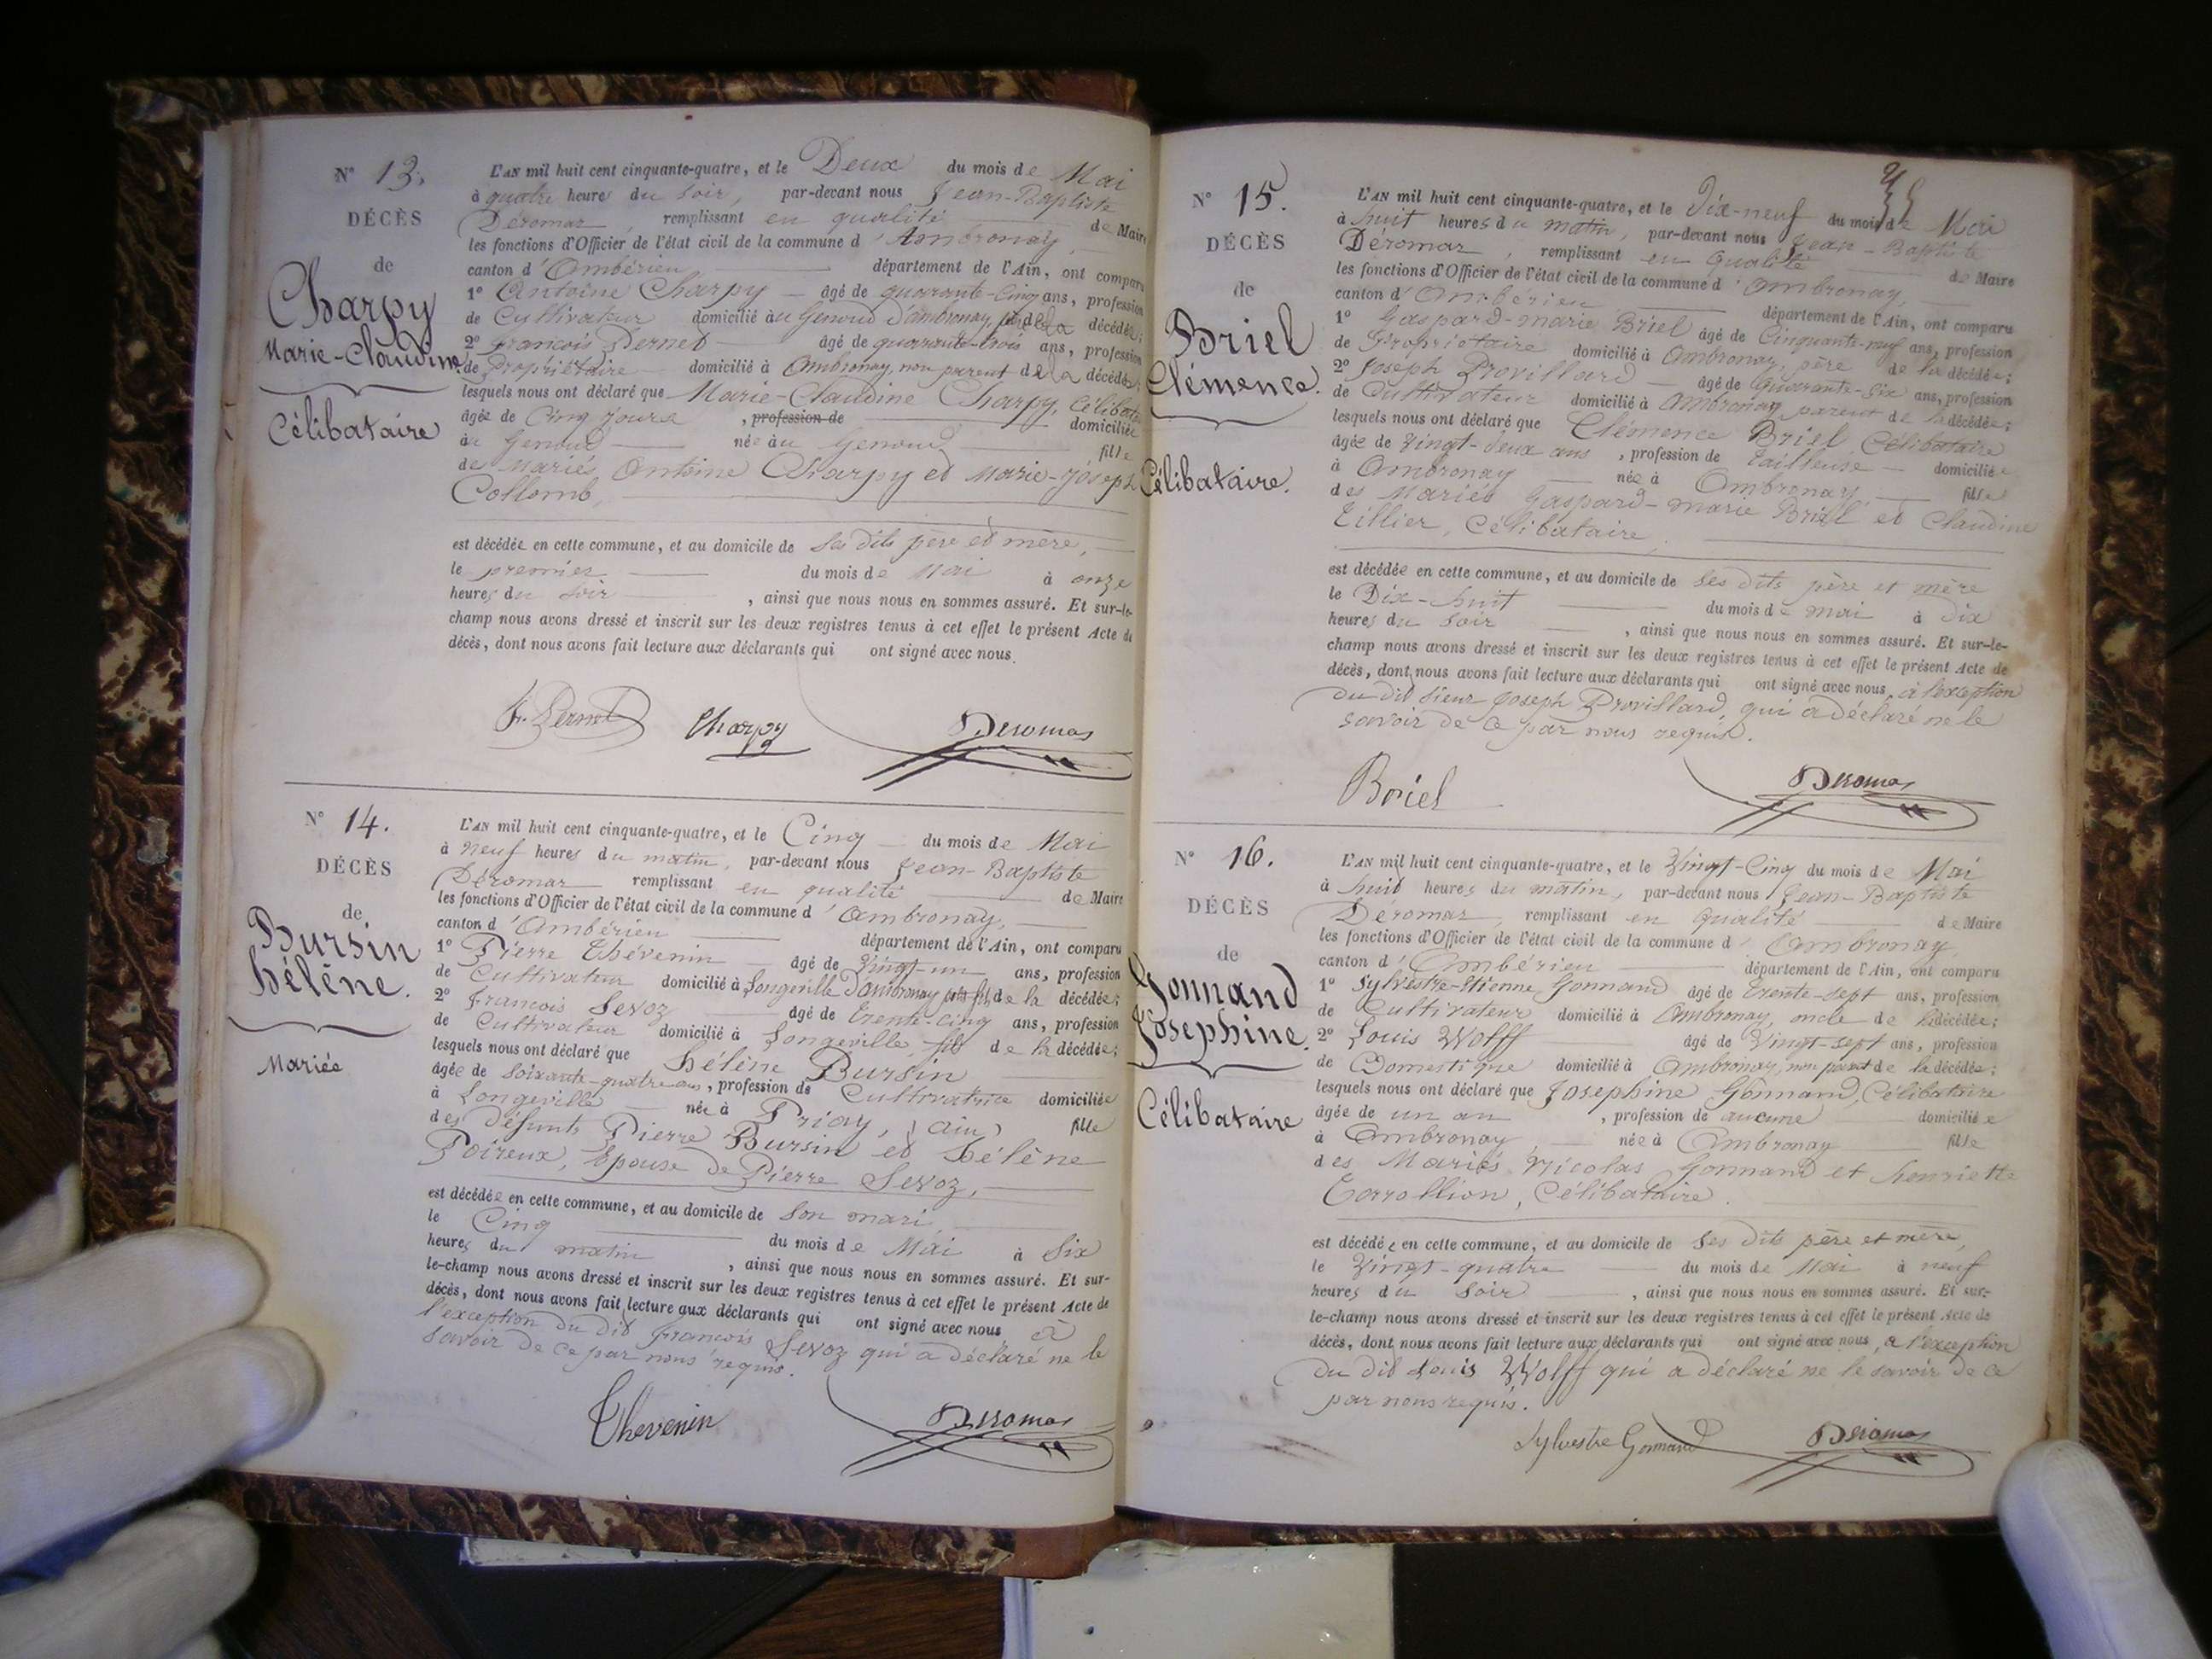 N° 13.
DÉCÈS
de
Charpy
Marie-Claudine
Célibataire
L'AN mil huit cent cinquante-quatre, et le Deux du mois de Mai
à quatre heures du soir, par-devant nous Jean-Baptiste
Déromas, remplissant en qualité de Maire
les fonctions d'Officier de l'état civil de la commune d'Ambronay,
canton d'Ambérieu département de l'Ain, ont comparu
1° Antoine Charpy âgé de quarante-cinq ans, profession
de Cultivateur domicilié au Genoud d'ambronay, de la décédée;
2° François Pernet âgé de quarante-trois ans, profession
de propriétaire domicilié à Ambronay, non parent de la décédée;
lesquels nous ont déclaré que Marie-Claudine Charpy, Célibataire
âgée de Cinq jours, profession de domiciliée
au Genoud née au Genoud fille
de Mariés Antoine Charpy et Marie-Joseph
Collomb,
est décédée en cette commune, et au domicile de ses dits père et mère,
le premier du mois de Mai à onze
heures du soir, ainsi que nous nous en sommes assuré. Et sur-le-
champ nous avons dressé et inscrit sur les deux registres tenus à cet effet le présent Acte de
décès, dont nous avons fait lecture aux déclarants qui ont signé avec nous.
F. Pernet Charpy Deromas
N° 14.
DÉCÈS
de
Bursin
hélène.
Mariée
L'AN mil huit cent cinquante-quatre, et le Cinq du mois de Mai
à neuf heures du matin, par-devant nous Jean-Baptiste
Déromas remplissant en qualité de Maire
les fonctions d'Officier de l'état civil de la commune d'ambronay,
canton d'ambérieu département de l'Ain, ont comparu
1° Pierre Thévenin âgé de Vingt-un ans, profession
de Cultivateur domicilié à Longeville d'ambronay de la décédée;
2° François Sevoz âgé de trente-cinq ans, profession
de Cultivateur domicilié à Longeville, fils de la décédée;
lesquels nous ont déclaré que hélène Bursin
âgée de soixante-quatre ans, profession de Cultivatrice domiciliée
à Longeville née à Priay, (ain) fille
des défunts Pierre Bursin et hélène
Poireux, Epouse de Pierre Sevoz,
est décédée en cette commune, et au domicile de son mari,
le Cinq du mois de Mai à Six
heures du matin, ainsi que nous nous en sommes assuré. Et sur-
le-champ nous avons dressé et inscrit sur les deux registres tenus à cet effet le présent Acte de
décès, dont nous avons fait lecture aux déclarants qui ont signé avec nous à
l'exception du dit françois Sevoz qui a déclaré ne le
savoir de ce par nous requis.
Thevenin Deromas
N° 15.
DÉCÈS
de
Briel
Clémence.
Célibataire.
L'AN mil huit cent cinquante-quatre, et le Dix-neuf du mois de Mai
à huit heures du matin, par-devant nous Jean-Baptiste
Déromas, remplissant en qualité de Maire
les fonctions d'Officier de l'état civil de la commune d'ambronay,
canton d'ambérieu département de l'Ain, ont comparu
1° Gaspard-marie Briel âgé de Cinquante-neuf ans, profession
de Propriétaire domicilié à Ambronay, père de la décédée;
2° Joseph Provillard âgé de Quarante-six ans, profession
de Cultivateur domicilié à Ambronay parent de la décédée;
lesquels nous ont déclaré que Clémence Briel Célibataire
âgée de Vingt-deux ans, profession de tailleuse domiciliée
à Ambronay née à Ambronay fille
des Mariés Gaspard-marie Briel et Claudine
tillier, Célibataire,
est décédée en cette commune, et au domicile de ses dits père et mère
le Dix-huit du mois de mai à dix
heures du soir, ainsi que nous nous en sommes assuré. Et sur-le-
champ nous avons dressé et inscrit sur les deux registres tenus à cet effet le présent Acte de
décès, dont nous avons fait lecture aux déclarants qui ont signé avec nous à l'exception
du dit sieur Joseph Provillard, qui a déclaré ne le
savoir de ce par nous requis.
Briel Deromas
N° 16.
DÉCÈS
de
Gonnand
Josephine.
Célibataire
L'AN mil huit cent cinquante-quatre, et le Vingt-Cinq du mois de Mai
à huit heures du matin, par-devant nous Jean-Baptiste
Déromas, remplissant en qualité de Maire
les fonctions d'Officier de l'état civil de la commune d'Ambronay,
canton d'Ambérieu département de l'Ain, ont comparu
1° Sylvestre-Etienne Gonnand âgé de trente-sept ans, profession
de Cultivateur domicilié à Ambronay, oncle de la décédée;
2° Louis Wolff âgé de Vingt-sept ans, profession
de Domestique domicilié à Ambronay, non parent de la décédée;
lesquels nous ont déclaré que Josephine Gonnand, Célibataire
âgée de un an, profession de aucune domiciliée
à Ambronay née à Ambronay fille
des Mariés Nicolas Gonnand et henriette
Terrollion, Célibataire.
est décédée en cette commune, et au domicile de ses dits père et mère,
le Vingt-quatre du mois de Mai à neuf
heures du soir, ainsi que nous nous en sommes assuré. Et sur-
le-champ nous avons dressé et inscrit sur les deux registres tenus à cet effet le présent Acte de
décès, dont nous avons fait lecture aux déclarants qui ont signé avec nous, à l'exception
du dit Louis Wolff qui a déclaré ne le savoir de ce
par nous requis.
Sylvestre Gonnand Deromas